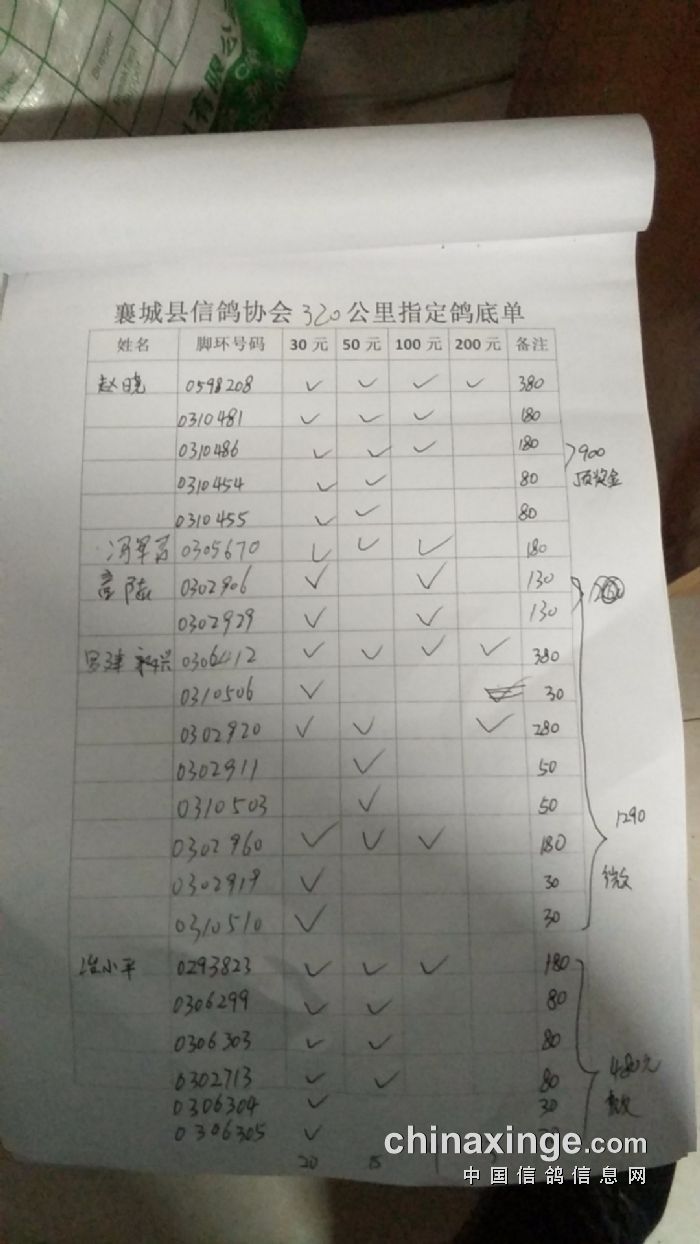 有限公
襄城县信鸽协会320公里指定鸽底单
姓名 脚环号码 30元 50元 100元 200元 备注
赵晓 0598208 ✓ ✓ ✓ ✓ 380
0310481 ✓ ✓ ✓ 180
0310486 ✓ ✓ ✓ 180 900
0310454 ✓ ✓ 80 顶奖金
0310455 ✓ ✓ 80
0305670 ✓ ✓ ✓ 180
0302906 ✓ ✓ 130
0302929 ✓ ✓ 130
0306412 ✓ ✓ ✓ ✓ 380
0310506 ✓ 30
0302920 ✓ ✓ ✓ 280
0302911 ✓ 50
0310503 ✓ 50
0302960 ✓ ✓ ✓ 180 1290
0302919 ✓ 30
0310510 ✓ 30
小平 0293823 ✓ ✓ ✓ 180
0306299 ✓ ✓ 80
0306303 ✓ ✓ 80
0302713 ✓ ✓ 80 480元
0306304 ✓ 30
0306305 ✓
20 15
chinaxinge.com
中国信鸽信息网